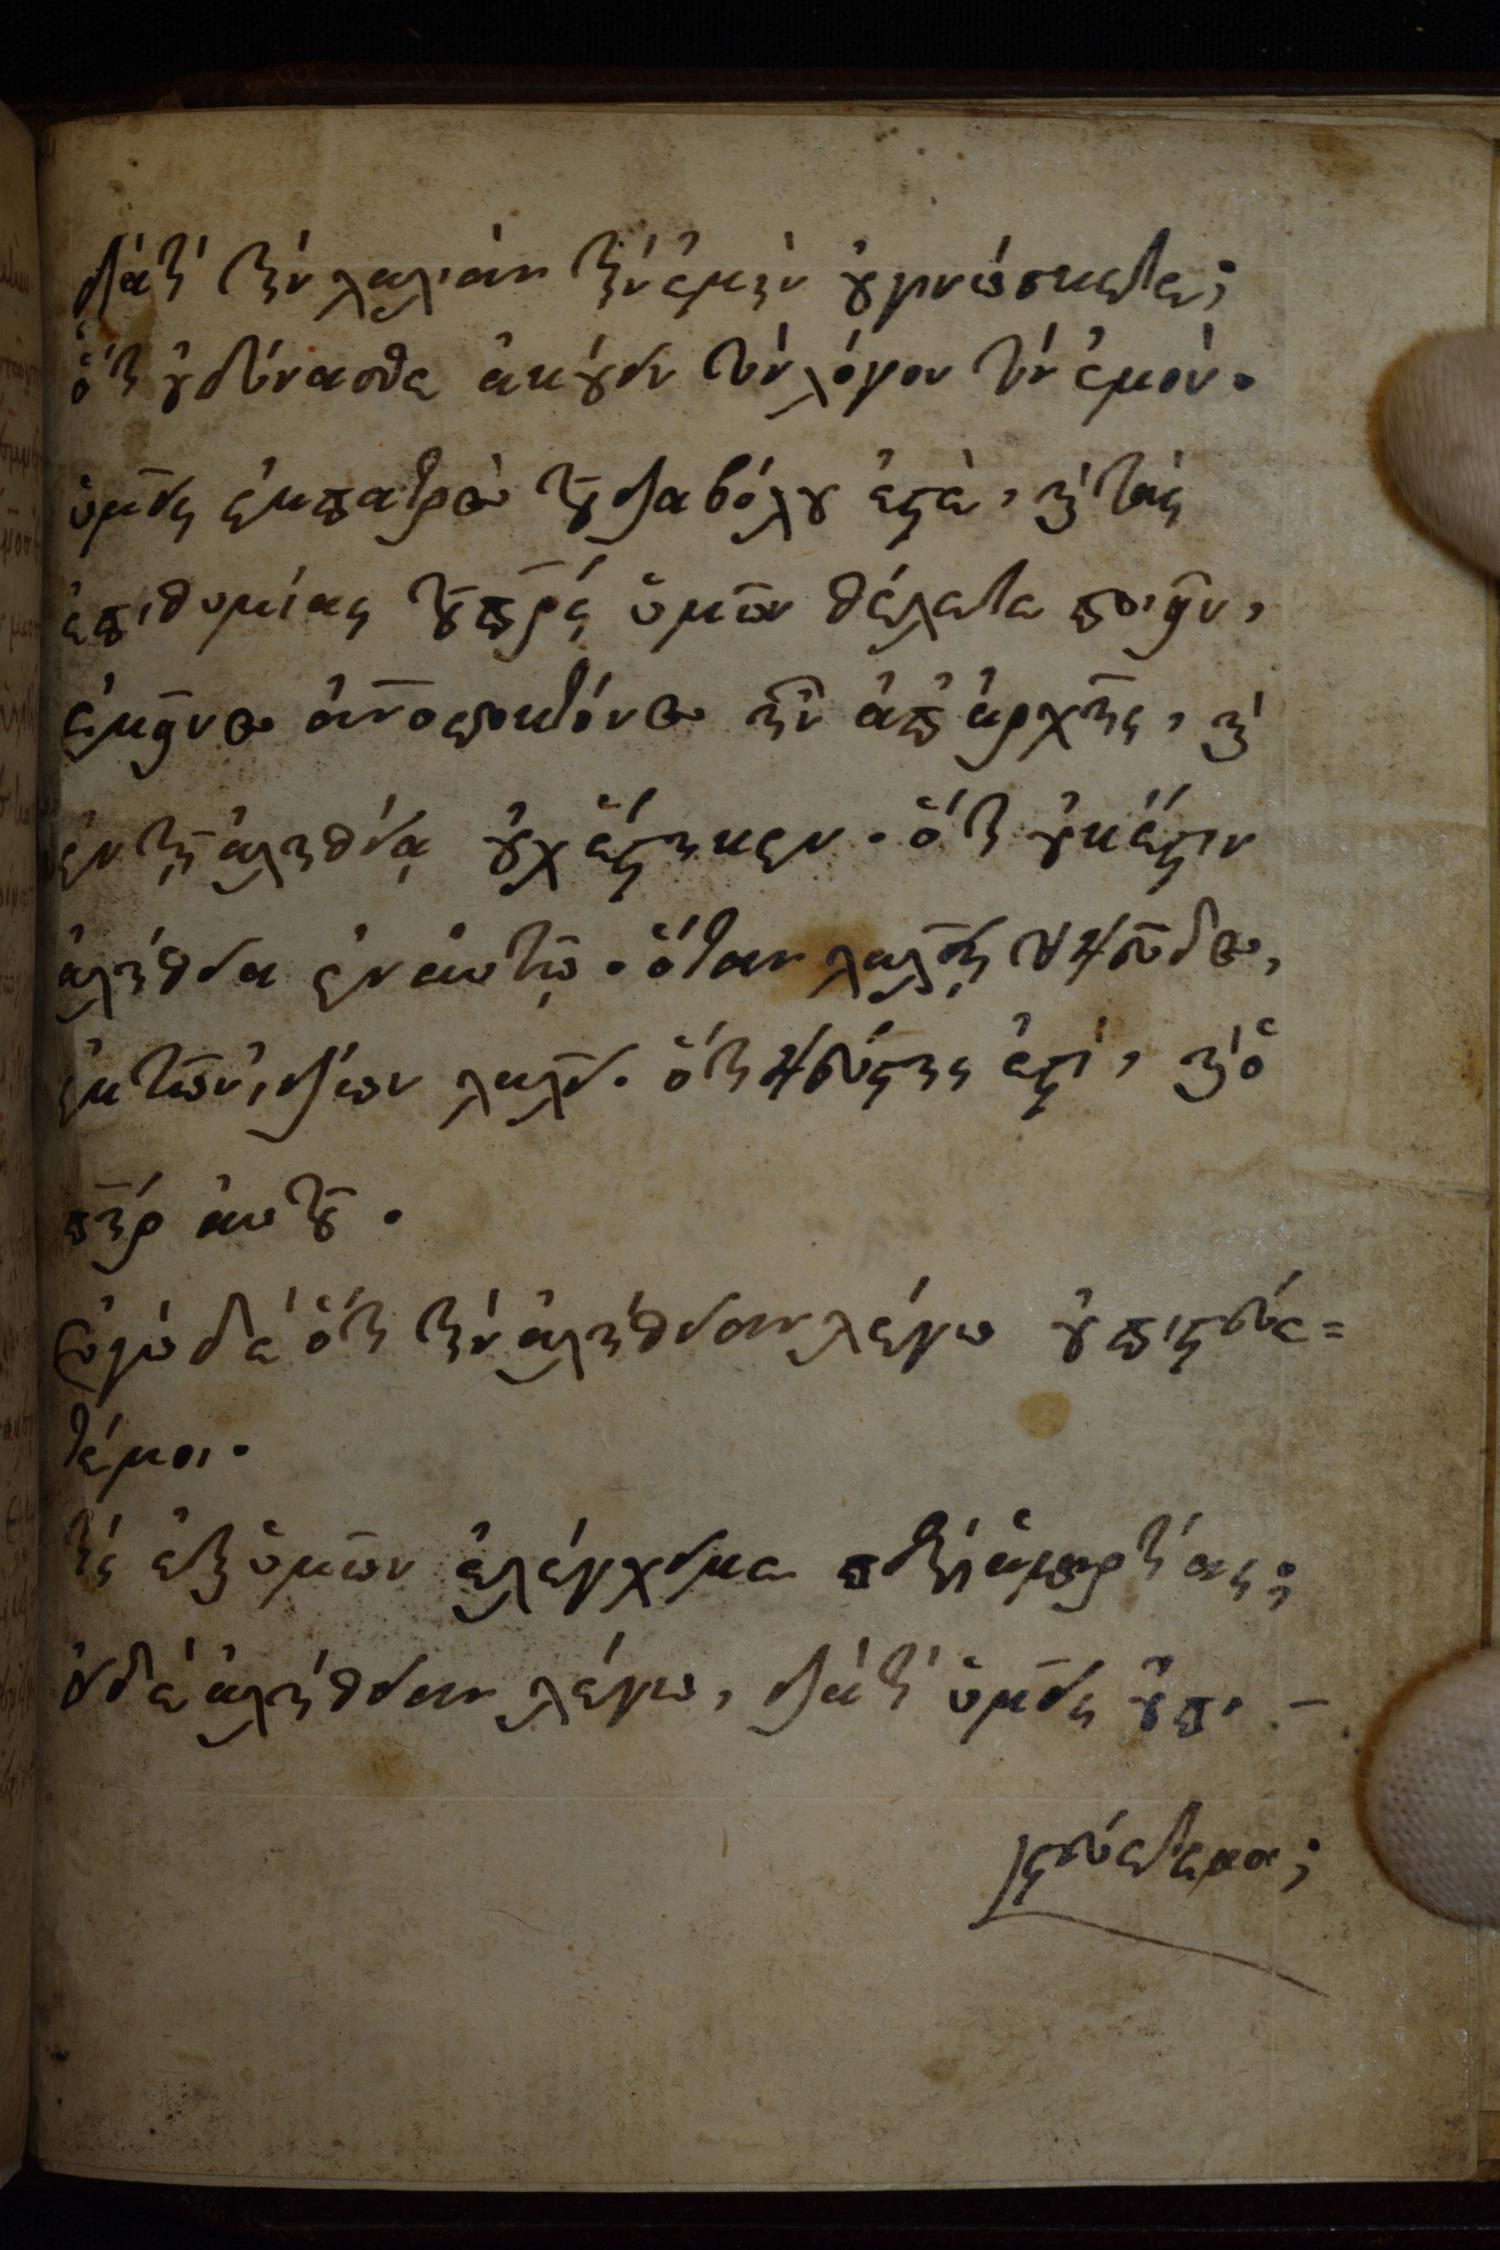 διατὶ τὴν λαλιὰν τὴν ἐμὴν οὐ γινώσκετε;
ὅτι οὐ δύνασθε ἀκούειν τὸν λόγον τὸν ἐμόν.
ὑμεῖς ἐκ πατρὸς τοῦ διαβόλου ἐστὲ, καὶ τὰς
ἐπιθυμίας τοῦ πρς ὑμῶν θέλετε ποιεῖν,
ἐκεῖνος ἀνοποκτόνος ἦν ἀπ' ἀρχῆς, καὶ
ἐν τῇ ἀληθείᾳ οὐχ ἕστηκεν. ὅτι οὐκ ἔστιν
ἀλήθεια ἐν αὐτῷ. ὅταν λαλῇ τὸ ψεῦδος,
ἐκ τῶν ἰδίων λαλεῖ. ὅτι ψεύστης ἐστὶ, καὶ ὁ
πηρ αὐτοῦ.
Ἐγὼ δὲ ὅτι τὴν ἀλήθειαν λέγω οὐ πιστεύε=
τέ μοι.
τίς ἐξ ὑμῶν ἐλέγχει με περὶ ἁμαρτίας;
εἰ δὲ ἀλήθειαν λέγω, διατὶ ὑμεῖς οὐ πι-
στεύετέ μοι;